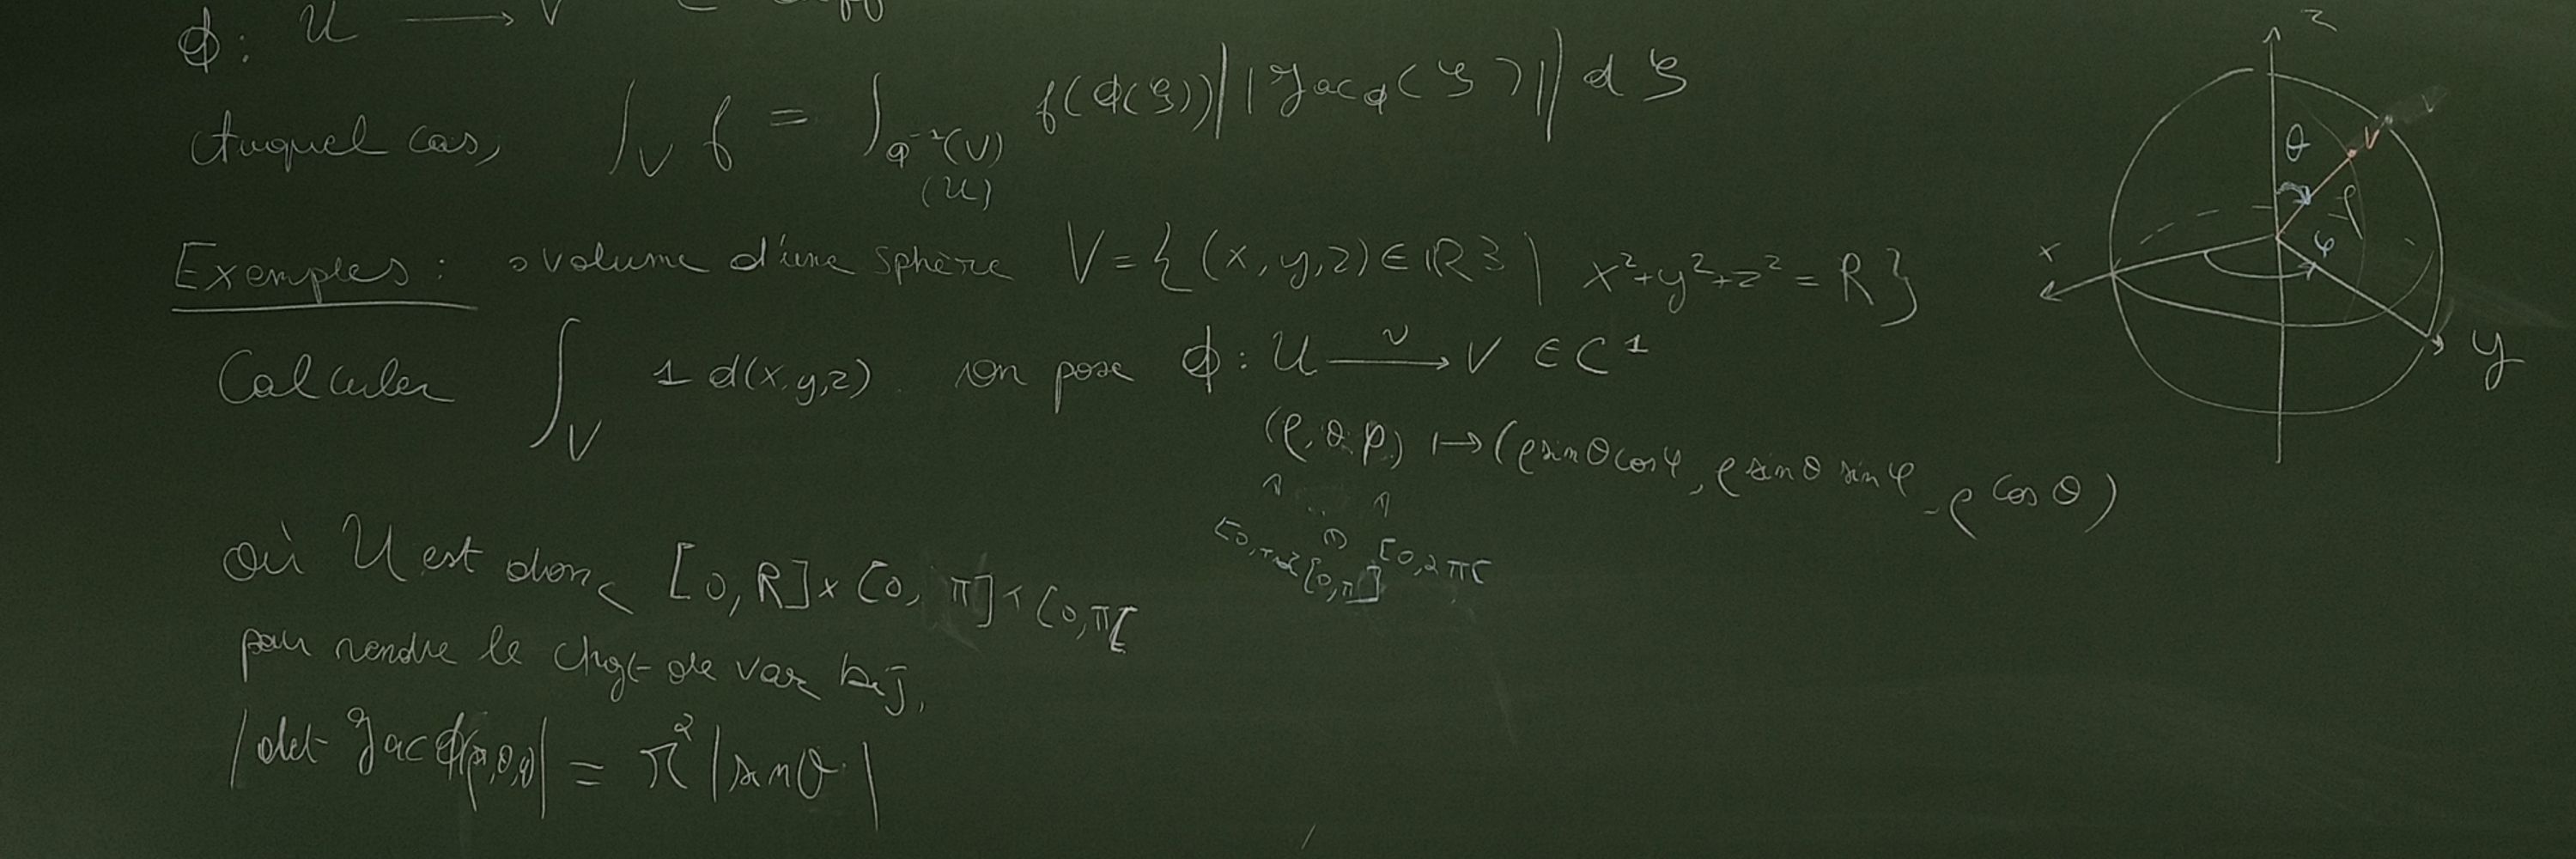 ϕ: U → V
Auquel cas, ∫_V f = ∫_{ϕ⁻¹(V)} f(ϕ(ξ)) | |Jac_ϕ(ξ)| | dξ
(U)
Exemples : ∘ volume d'une sphère V = {(x, y, z) ∈ ℝ³ | x²+y²+z² = R}
Calculer ∫_V 1 d(x,y,z). on pose ϕ : U → V ∈ C¹
(ρ, θ, φ) ↦ (ρ sinθ cosφ, ρ sinθ sinφ, ρ cosθ)
[0,π] [0,2π[
où U est donc [0,R] × [0,π] × [0,π[
pour rendre le chgt de var bij,
|det Jac ϕ(r,θ,φ)| = r² |sinθ|
z
θ
ρ
φ
x
y